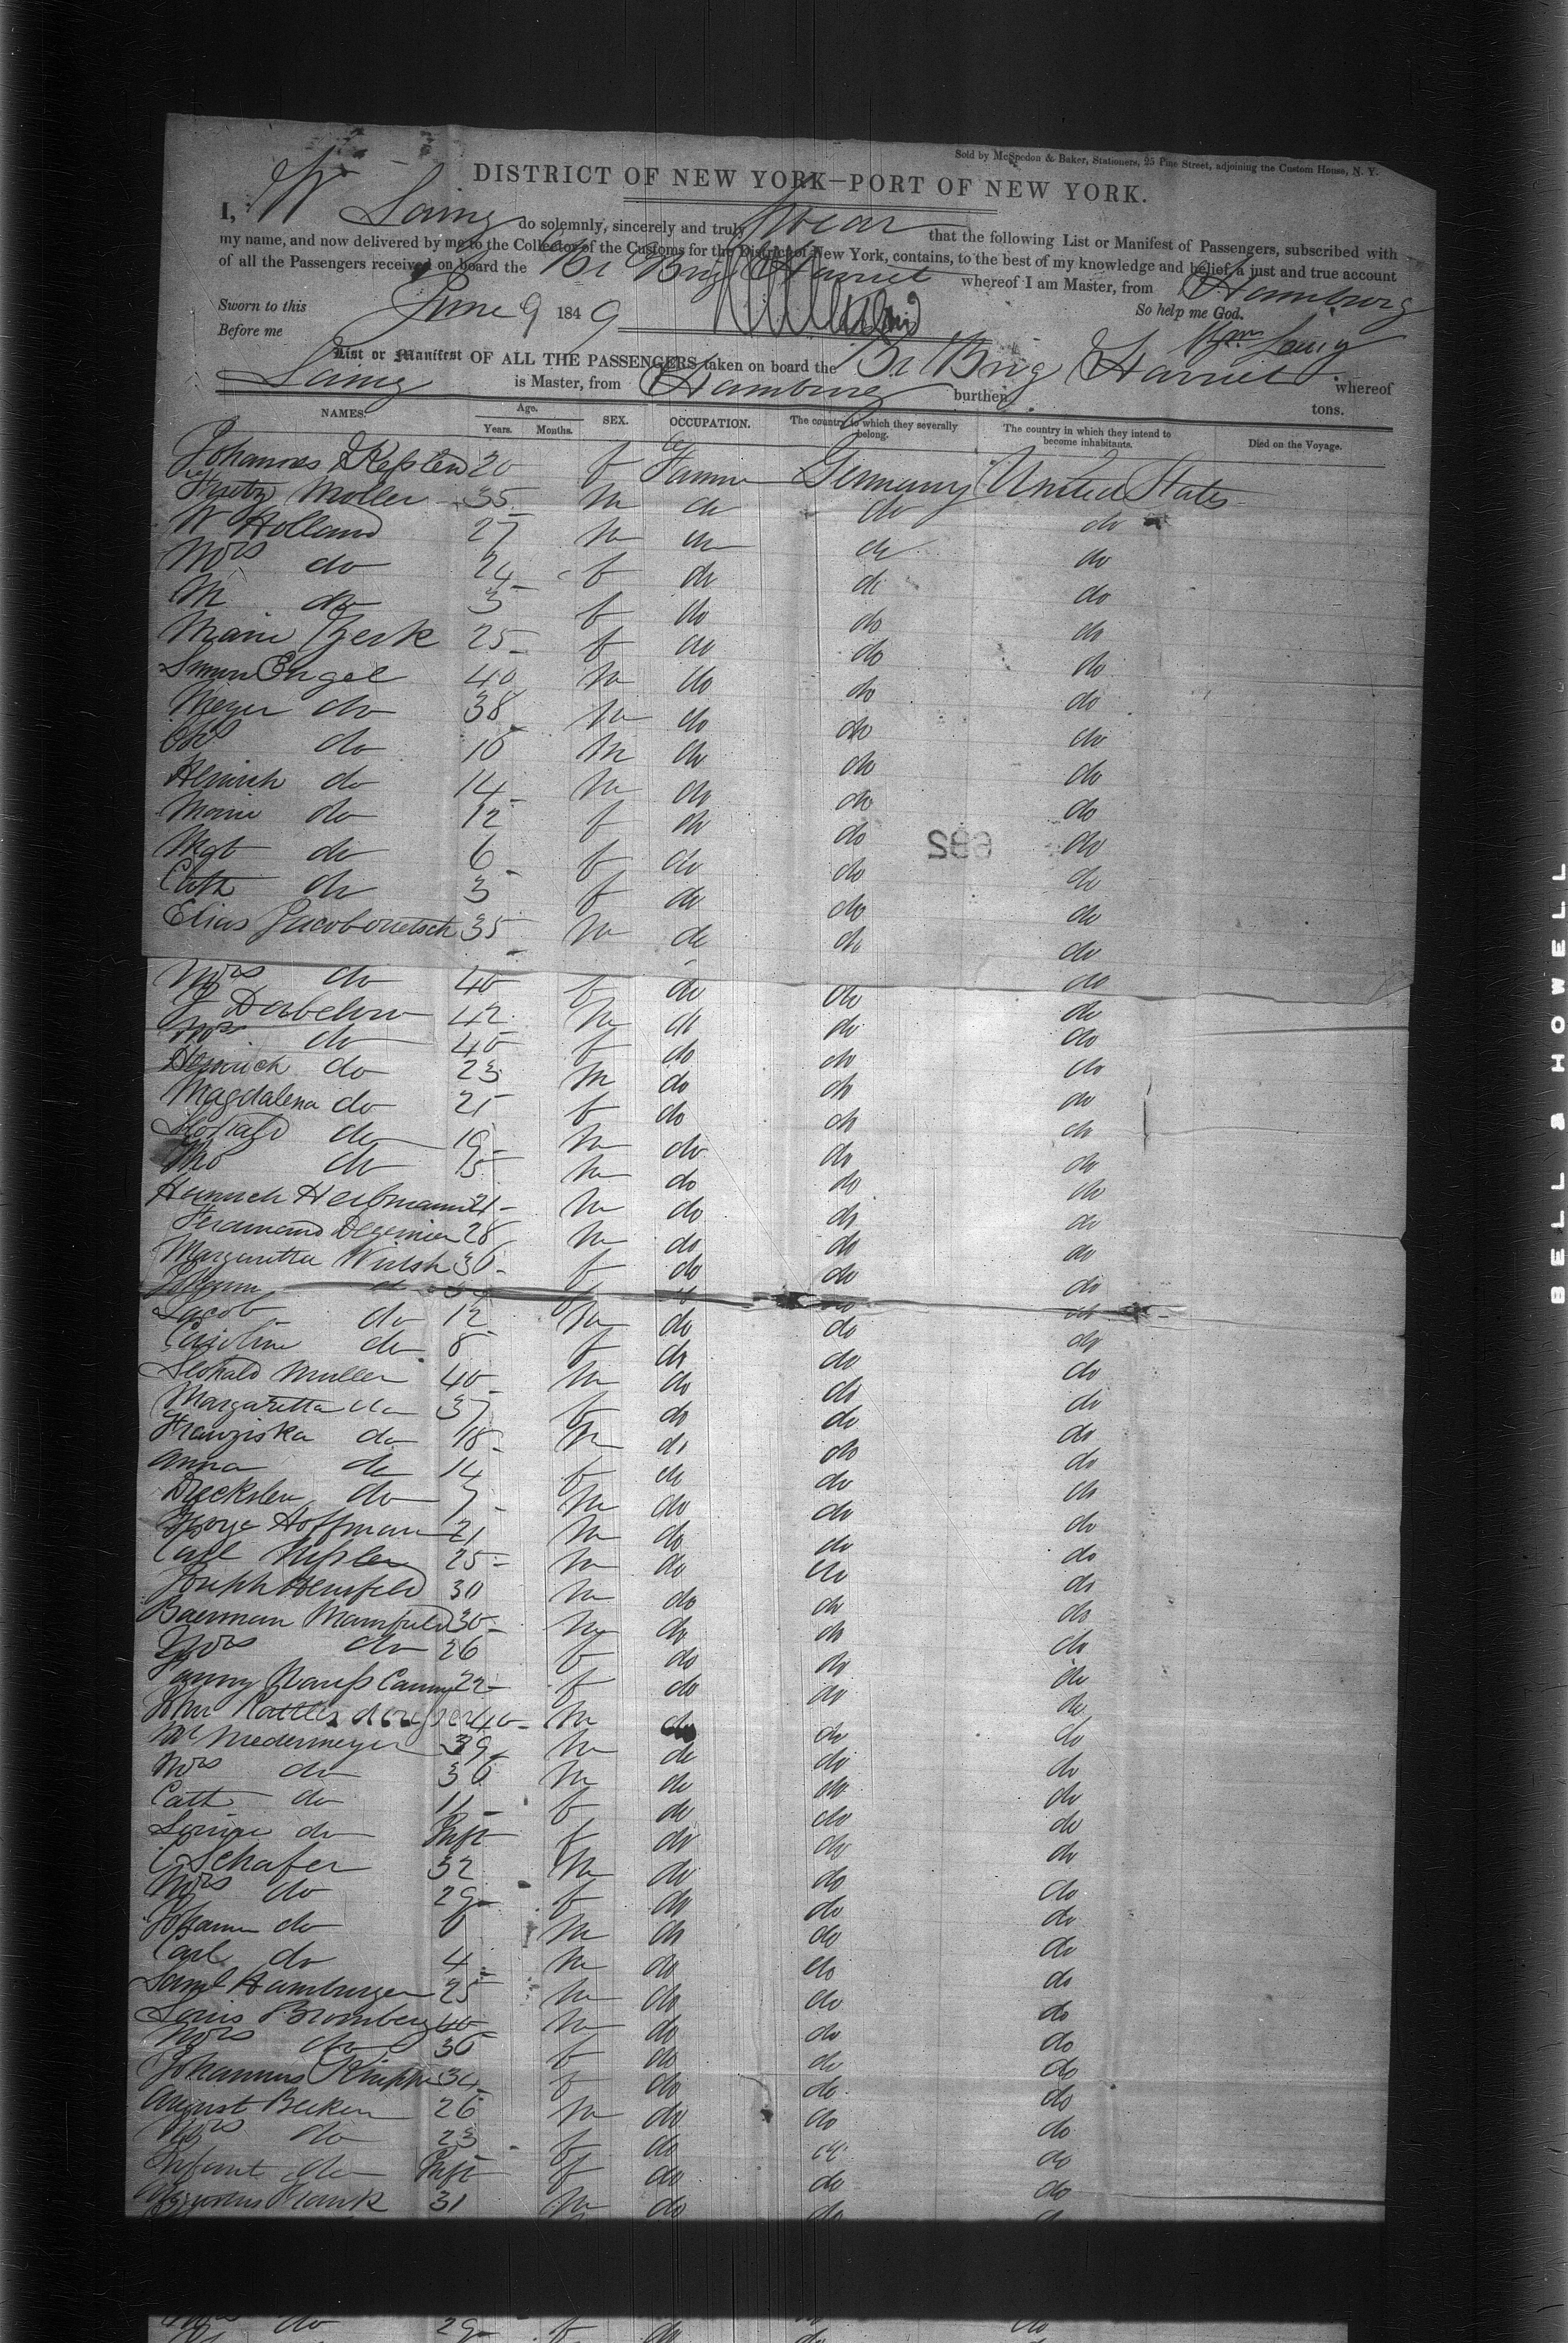 Sold by McSpedon & Baker, Stationers, 25 Pine Street, adjoining the Custom House, N. Y.
DISTRICT OF NEW YORK—PORT OF NEW YORK.
I, W Laing do solemnly, sincerely and truly swear that the following List or Manifest of Passengers, subscribed with
my name, and now delivered by me to the Collector of the Customs for the District of New York, contains, to the best of my knowledge and belief, a just and true account
of all the Passengers received on board the Br Brig Harriet whereof I am Master, from Hamburg
Sworn to this June 9 1849 So help me God.
Before me Wm Laing
List or Manifest OF ALL THE PASSENGERS taken on board the Br Brig Harriet whereof
Laing is Master, from Hamburg burthen tons.
NAMES. Age. Years. Months. SEX. OCCUPATION. The country to which they severally belong. The country in which they intend to become inhabitants. Died on the Voyage.
Johannes 20 f Farmer Germany United States
Moller 35 m do do do
W Holland 27 m do do do
Mrs do 24 f do do do
M do 3 f do do do
Marie 25 f do do do
Simon Engel 40 m do do do
Meyer do 38 m do do do
do m do do do
Heinrich do 14 m do do do
Marie do 12 f do do do
Mgt do 6 f do do do
Cath do 3 f do do do
Elias 35 m do do do
Mrs do 40 f do do do
J Dabelow 42 m do do do
Mrs do 40 f do do do
Heinrich do 23 m do do do
Magdalena do 21 f do do do
do 19 m do do do
do 15 m do do do
Heinrich 21 m do do do
Ferdinand 28 m do do do
Margaretta 30 f do do do
Johann do
Jacob do 12 m do do do
Caroline do 8 f do do do
Muller 40 m do do do
Margaretta do 37 f do do do
Franziska do 18 m do do do
Anna do 14 f do do do
do 7 m do do do
George Hoffman 21 m do do do
Carl 25 m do do do
Joseph 30 m do do do
Baerman 30 m do do do
Mrs do 26 f do do do
Fanny 22 f do do do
John 40 m do do do
Niedermeyer 39 m do do do
Mrs do 30 m do do do
Cath do 11 f do do do
Louise do Inft f do do do
C Schafer 32 m do do do
Mrs do 29 f do do do
Johann do m do do do
Carl do 4 m do do do
Saml Hamburger 25 m do do do
Louis Bromberg 40 m do do do
Mrs do 30 f do do do
Johannes 34 f do do do
August Becker 26 m do do do
Mrs do 23 f do do do
Infant do Inft f do do do
31 m do do do
do 29 f do do do
BELL & HOWELL